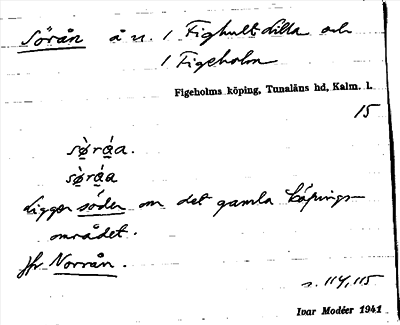 Sörån å n. 1 Fighult dilla och
1 Figeholm
Figeholms köping, Tunaläns hd, Kalm. l.
15
sø̀rá̱a.
sø̀rá̱a
Ligger söder om det gamla köpings-
området.
Jfr Norrån.
s. 114, 115
Ivar Modéer 1941